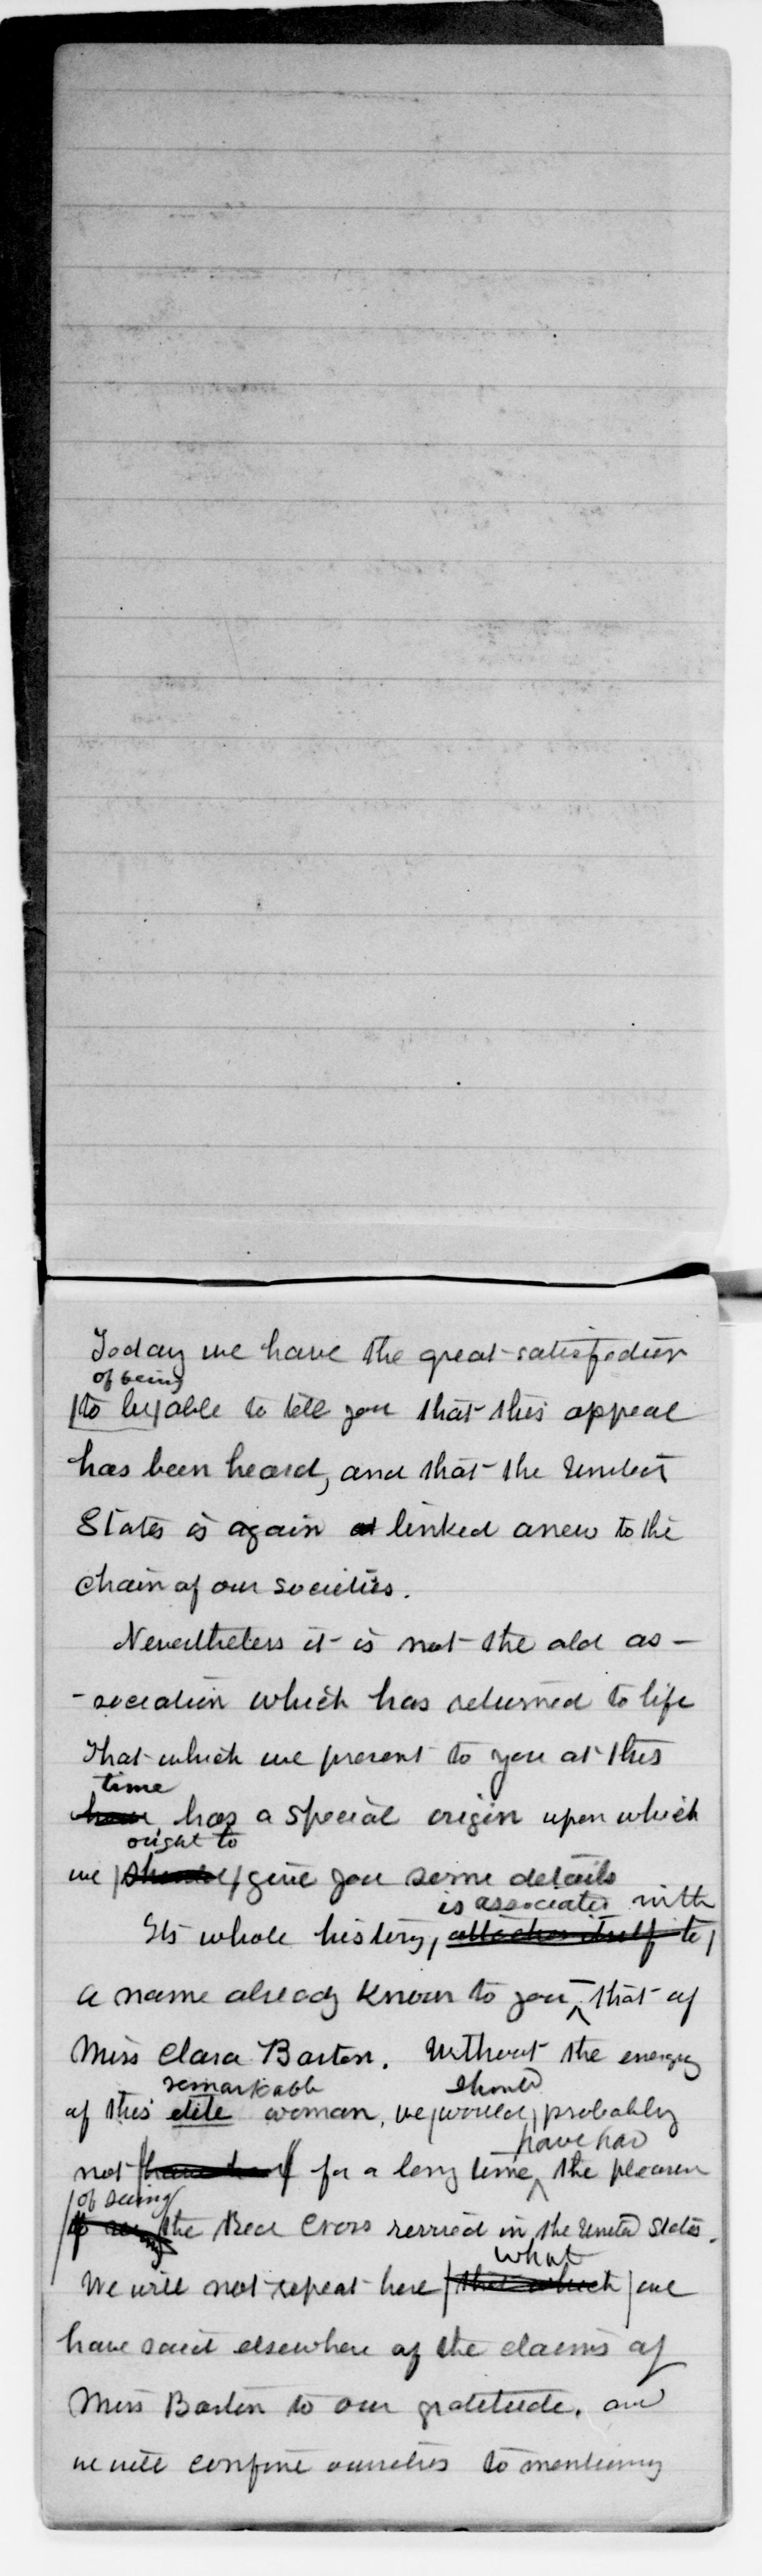 Today we have the great satisfaction
of being
to be able to tell you that this appeal
has been heard, and that the United
States is again linked anew to the
chain of our societies.
Nevertheless it is not the old as-
-sociation which has returned to life
That which we present to you at this
time
has a special origin upon which
ought to
we should give you some details
is associated with
Its whole history, attaches itself to
a name already known to you - that of
Miss Clara Barton. Without the energy
remarkable should
of this elite woman, we would probably
have had
not have had for a long time ^ the pleasure
of seeing
the Red Cross revived in the United States.
what
We will not repeat here that which we
have said elsewhere of the claims of
Miss Barton to our gratitude. and
we will confine ourselves to mentioning